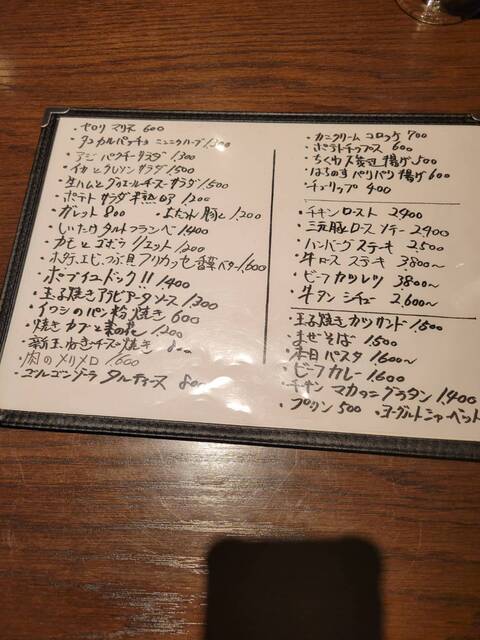 ・セロリ マリネ 600
・タコ カルパッチョ ニンニクハーブ 1,300
・アジ パクチーサラダ 1,300
・イカとクレソンサラダ 1,500
・生ハムとグリエールチーズサラダ 1,500
・ポテトサラダ 半熟 1,200
・ガレット 800 ・よだれ豚と 1,200
・しいたけ タルトフランベ 1,400
・カモとゴボウ リエット 1,200
・ホタテ エビ つぶ貝 フリカッセ 香草バター 1,600
・ポップチュードック!! 1,400
・玉子焼き アラビアータソース 1,300
・イワシのパン粉焼き 600
・焼きカブと菜の花 1,200
・新玉ねぎチーズ焼き 800
・肉のメリメロ 1,600
・ゴルゴンゾーラ タルティーヌ 800
・カニクリーム コロッケ 700
・ポテトチップス 600
・ちくわ 揚げ 500
・はちのす パリパリ揚げ 600
・チューリップ 400
・チキンロースト 2,400
・三元豚ロース ソテー 2,400
・ハンバーグステーキ 2,500
・牛ロース ステーキ 3,800〜
・ビーフカツレツ 3,800〜
・牛タンシチュー 2,600〜
・玉子焼きカツサンド 1,500
・まぜそば 1,500
・本日パスタ 1,600〜
・ビーフカレー 1,600
・チキンマカロニグラタン 1,400
・プリン 500 ・ヨーグルトシャーベット